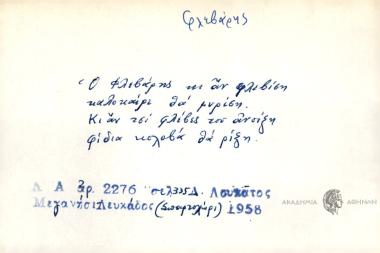 Φλεβάρης
Ὁ Φλεβάρης κι ἂν φλεβίση
καλοκαίρι θά μυρίση.
Κι ἂν τσί φλέβες του ἀνοίξη
φίδια κολοβά θά ρίξη.
Λ Α ἀρ. 2276 σελ 335 Δ. Λουκᾶτος
Μεγανήσι Λευκάδος (Σπαρτοχώρι) 1958
ΑΚΑΔΗΜΙΑ ΑΘΗΝΩΝ